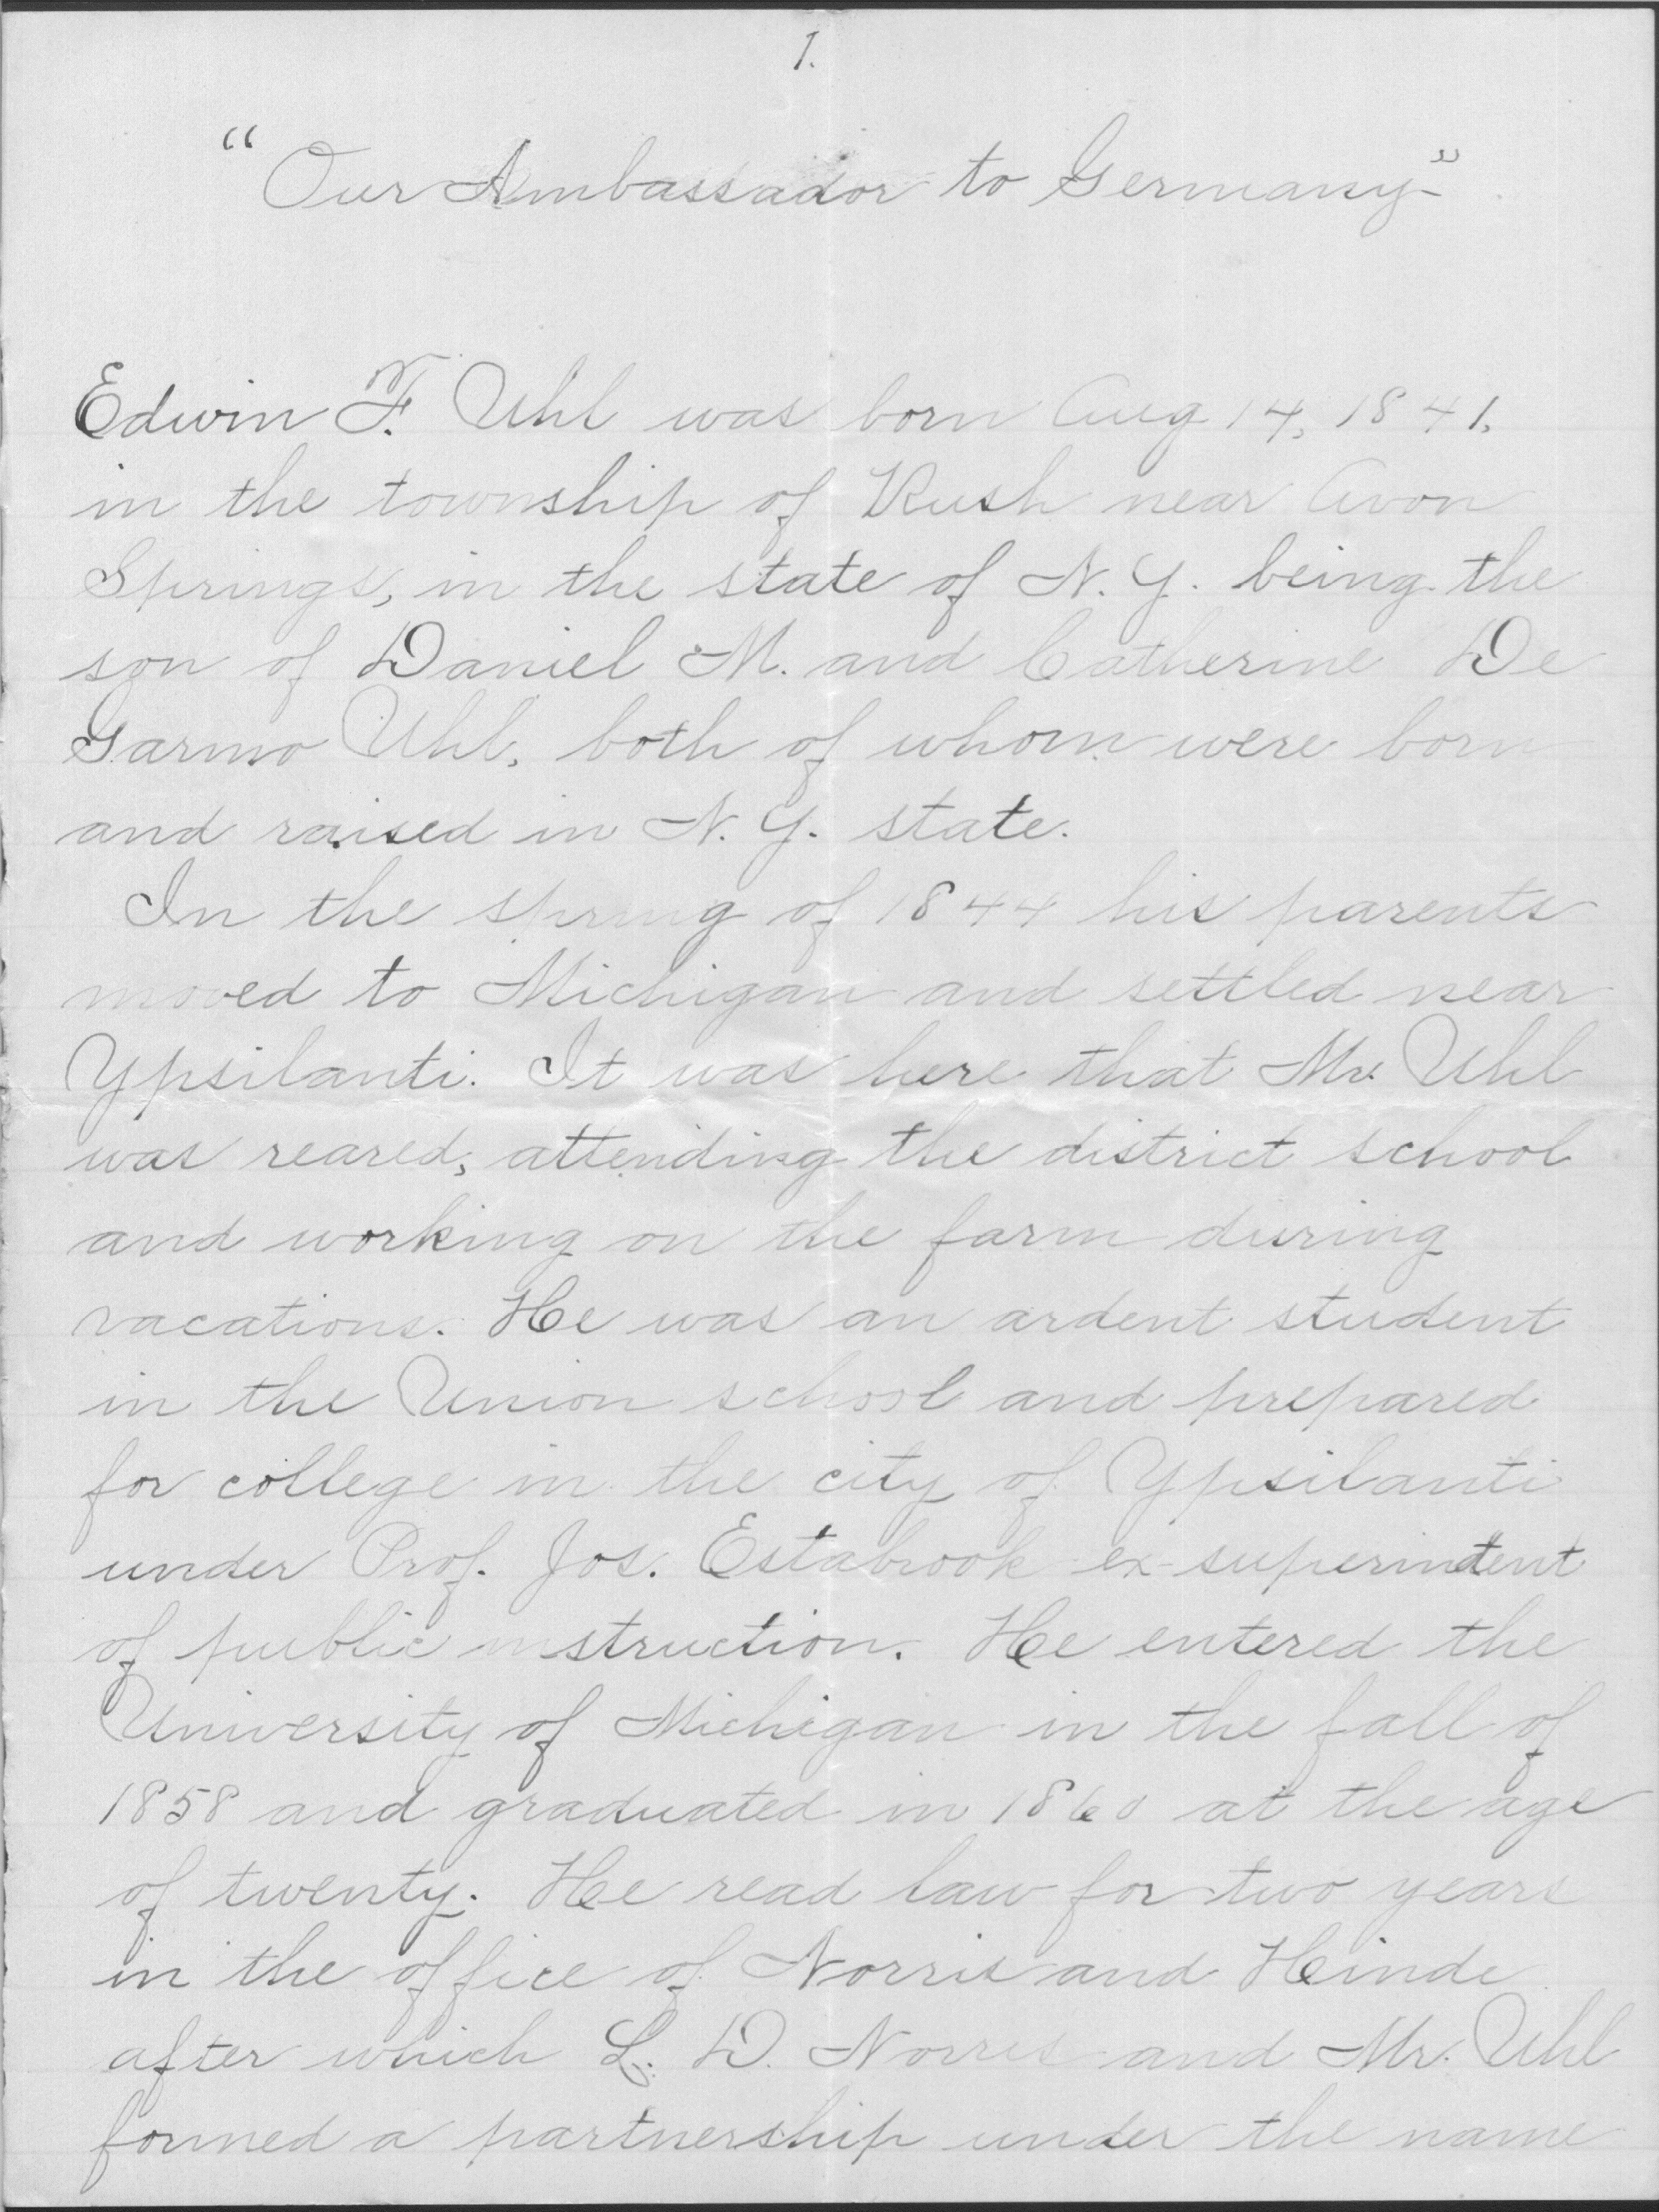 1.
"Our Ambassador to Germany"
Edwin F. Uhl was born Aug 14, 1841,
in the township of Rush near Avon
Springs, in the state of N. Y. being the
son of Daniel M. and Catherine De
Garmo Uhl, both of whom were born
and raised in N. Y. state.
In the spring of 1844 his parents
moved to Michigan and settled near
Ypsilanti. It was here that Mr. Uhl
was reared, attending the district school
and working on the farm during
vacations. He was an ardent student
in the Union school and prepared
for college in the city of Ypsilanti
under Prof. Jos. Estabrook ex-superintent
of public instruction. He entered the
University of Michigan in the fall of
1858 and graduated in 1860 at the age
of twenty. He read law for two years
in the office of Norris and Hinde
after which L. D. Norris and Mr. Uhl
formed a partnership under the name